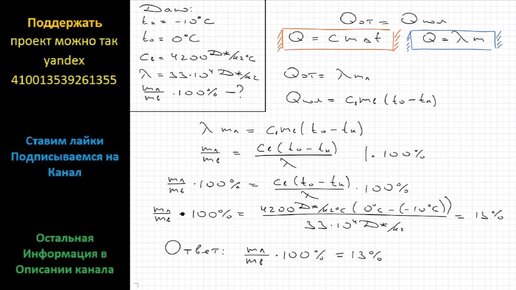 Поддержать
проект можно так
yandex
410013539261355
Ставим лайки
Подписываемся на
Канал
Остальная
Информация в
Описании канала
Дано:
t₀ = -10°C
t₀ = 0°C
Cв = 4200 Дж/кг°C
λ = 33·10⁴ Дж/кг
mл/mв · 100% - ?
Qот = Qпол
Q = c m Δt
Q = λ m
Qот = λ mл
Qпол = Cв mв (t₀ - tн)
λ mл = Cв mв (t₀ - tн)
mл/mв = Cв (t₀ - tн)/λ | · 100%
mл/mв · 100% = Cв (t₀ - tн)/λ · 100%
mл/mв · 100% = 4200 Дж/кг°C (0°C - (-10°C))/33·10⁴ Дж/кг = 13%
Ответ: mл/mв · 100% = 13%